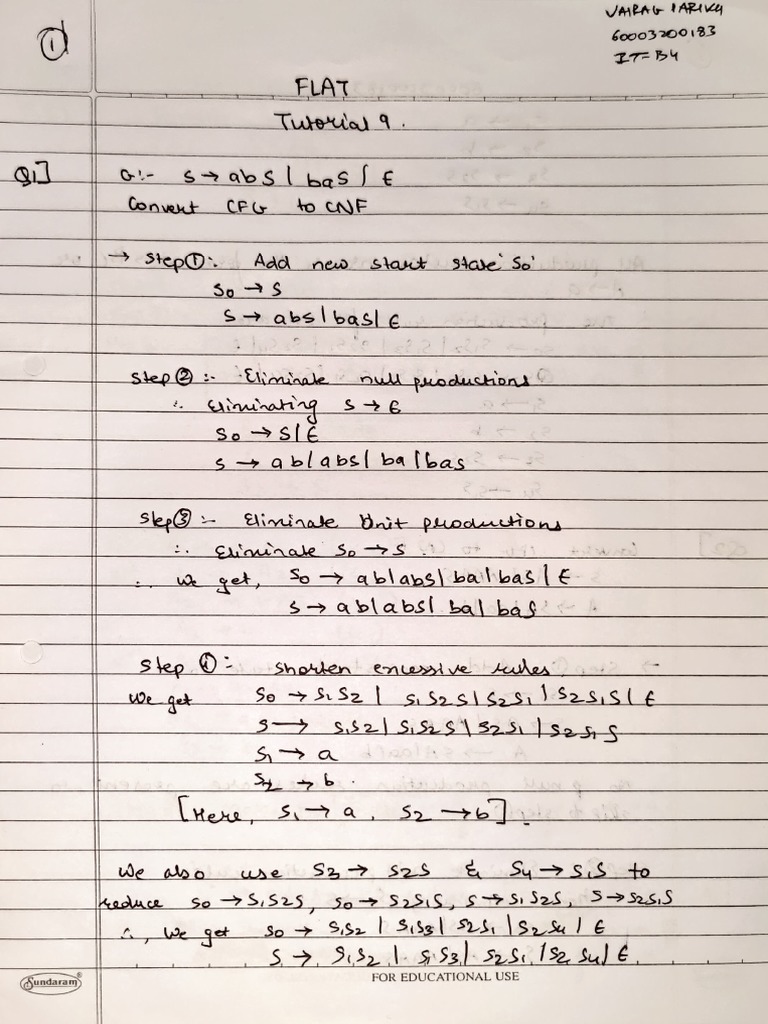 ①
VAIRAG PARIKH
60003200183
IT-B4
FLAT
Tutorial 9.
Q1] G:- S → abS | baS | ε
Convert CFG to CNF
→ Step ①:- Add new start state 'S0'
S0 → S
S → abS | baS | ε
Step ② :- Eliminate null productions
∴ Eliminating S → ε
S0 → S | ε
S → ab | abS | ba | baS
Step ③ :- Eliminate Unit productions
∴ Eliminate S0 → S
∴ We get, S0 → ab | abS | ba | baS | ε
S → ab | abS | ba | baS
Step ④ :- Shorten excessive rules
We get S0 → S1S2 | S1S2S | S2S1 | S2S1S | ε
S → S1S2 | S1S2S | S2S1 | S2S1S
S1 → a
S2 → b.
[Here, S1 → a, S2 → b].
We also use S3 → S2S & S4 → S1S to
reduce S0 → S1S2S, S0 → S2S1S, S → S1S2S, S → S2S1S
∴, We get S0 → S1S2 | S1S3 | S2S1 | S2S4 | ε
S → S1S2 | S1S3 | S2S1 | S2S4 | ε.
Sundaram®
FOR EDUCATIONAL USE